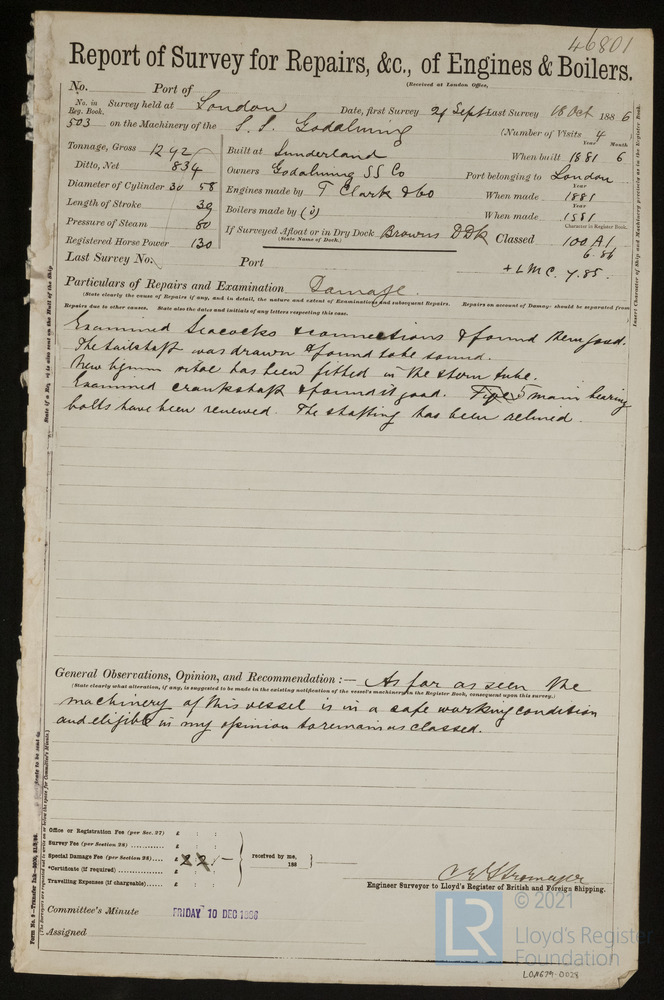 46801
Report of Survey for Repairs, &c., of Engines & Boilers.
(Received at London Office,
No. Port of
No. in Reg. Book. Survey held at London Date, first Survey 24 Sept Last Survey 18 Oct 1886
503 on the Machinery of the S.S. Godalming (Number of Visits 4
Tonnage, Gross 1242 Built at Sunderland When built 1881 6
Year Month
Ditto, Net 834 Owners Godalming SS Co Port belonging to London
Diameter of Cylinder 30 58 Engines made by T Clark & Co When made 1881
Year
Length of Stroke 39 Boilers made by When made 1881
Year
Pressure of Steam 80 If Surveyed Afloat or in Dry Dock Browns DDk Classed 100 A1
(State Name of Dock.)
Character in Register Book.
6.86
Registered Horse Power 130
Last Survey No. Port + LMC. 7.85.
Particulars of Repairs and Examination Damage.
(State clearly the cause of Repairs if any, and in detail, the nature and extent of Examination and subsequent Repairs. Repairs on account of Damage should be separated from
Repairs due to other causes. State also the dates and initials of any letters respecting this case.
Examined Seacocks & connections & found them good.
The tailshaft was drawn & found to be sound.
New lignum vitae has been fitted in the stern tube.
Examined crankshaft & found it good. 5 main bearing
bolts have been renewed. The shafting has been relined.
General Observations, Opinion, and Recommendation :— As far as seen the
(State clearly what alteration, if any, is suggested to be made in the existing notification of the vessel's machinery in the Register Book, consequent upon this survey.)
machinery of this vessel is in a safe working condition
and eligible in my opinion to remain as classed.
Office or Registration Fee (per Sec. 27) £ : :
Survey Fee (per Section 28) £ : :
Special Damage Fee (per Section 28) £ 2 2 -
received by me,
188
*Certificate (if required) £ : :
Travelling Expenses (if chargeable) £ : :
C E Stromeyer
Engineer Surveyor to Lloyd's Register of British and Foreign Shipping.
Committee's Minute FRIDAY 10 DEC 1886
Assigned
Insert Character of Ship and Machinery precisely as in the Register Book.
Form No. 9—Transfer Ink
© 2021
LR
Lloyd's Register
Foundation
LON679-0028